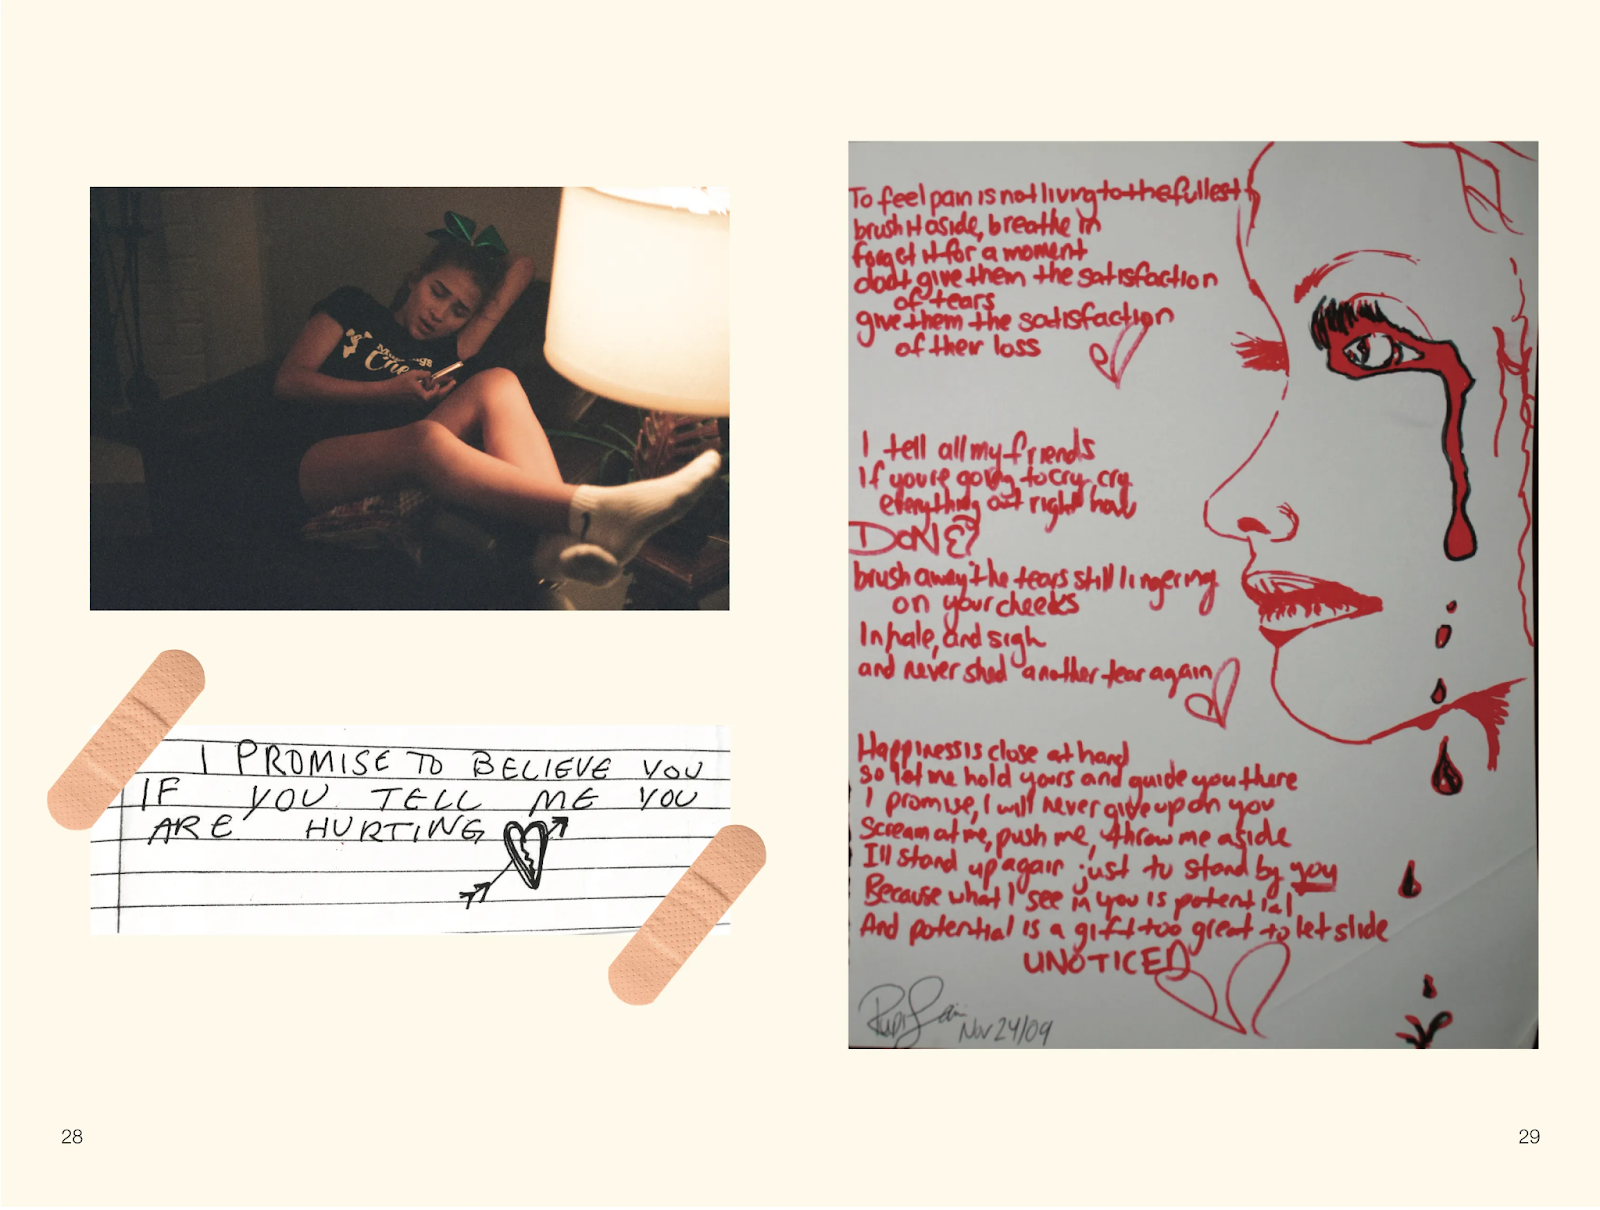 Che
I PROMISE TO BELIEVE YOU
IF YOU TELL ME YOU
ARE HURTING
28
To feel pain is not living to the fullest
brush it aside, breathe in
forget it for a moment
don't give them the satisfaction
of tears
give them the satisfaction
of their loss
I tell all my friends
If you're going to cry, cry
everything out right now
DONE?
brush away the tears still lingering
on your cheeks
Inhale, and sigh
and never shed another tear again
Happiness is close at hand
so let me hold yours and guide you there
I promise, I will never give up on you
Scream at me, push me, throw me aside
I'll stand up again just to stand by you
Because what I see in you is potential
And potential is a gift too great to let slide
UNOTICED
Nov 24/09
29